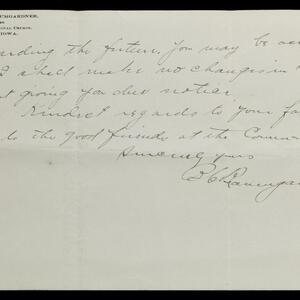 UMGARDNER,
IONAL CHURCH,
IOWA.
arding the future. You may be ass
I shall make no changes in
t giving you due notice.
Kindest regards to your fa
to the good friends at the Commu
Sincerely yours
B C Baumgar